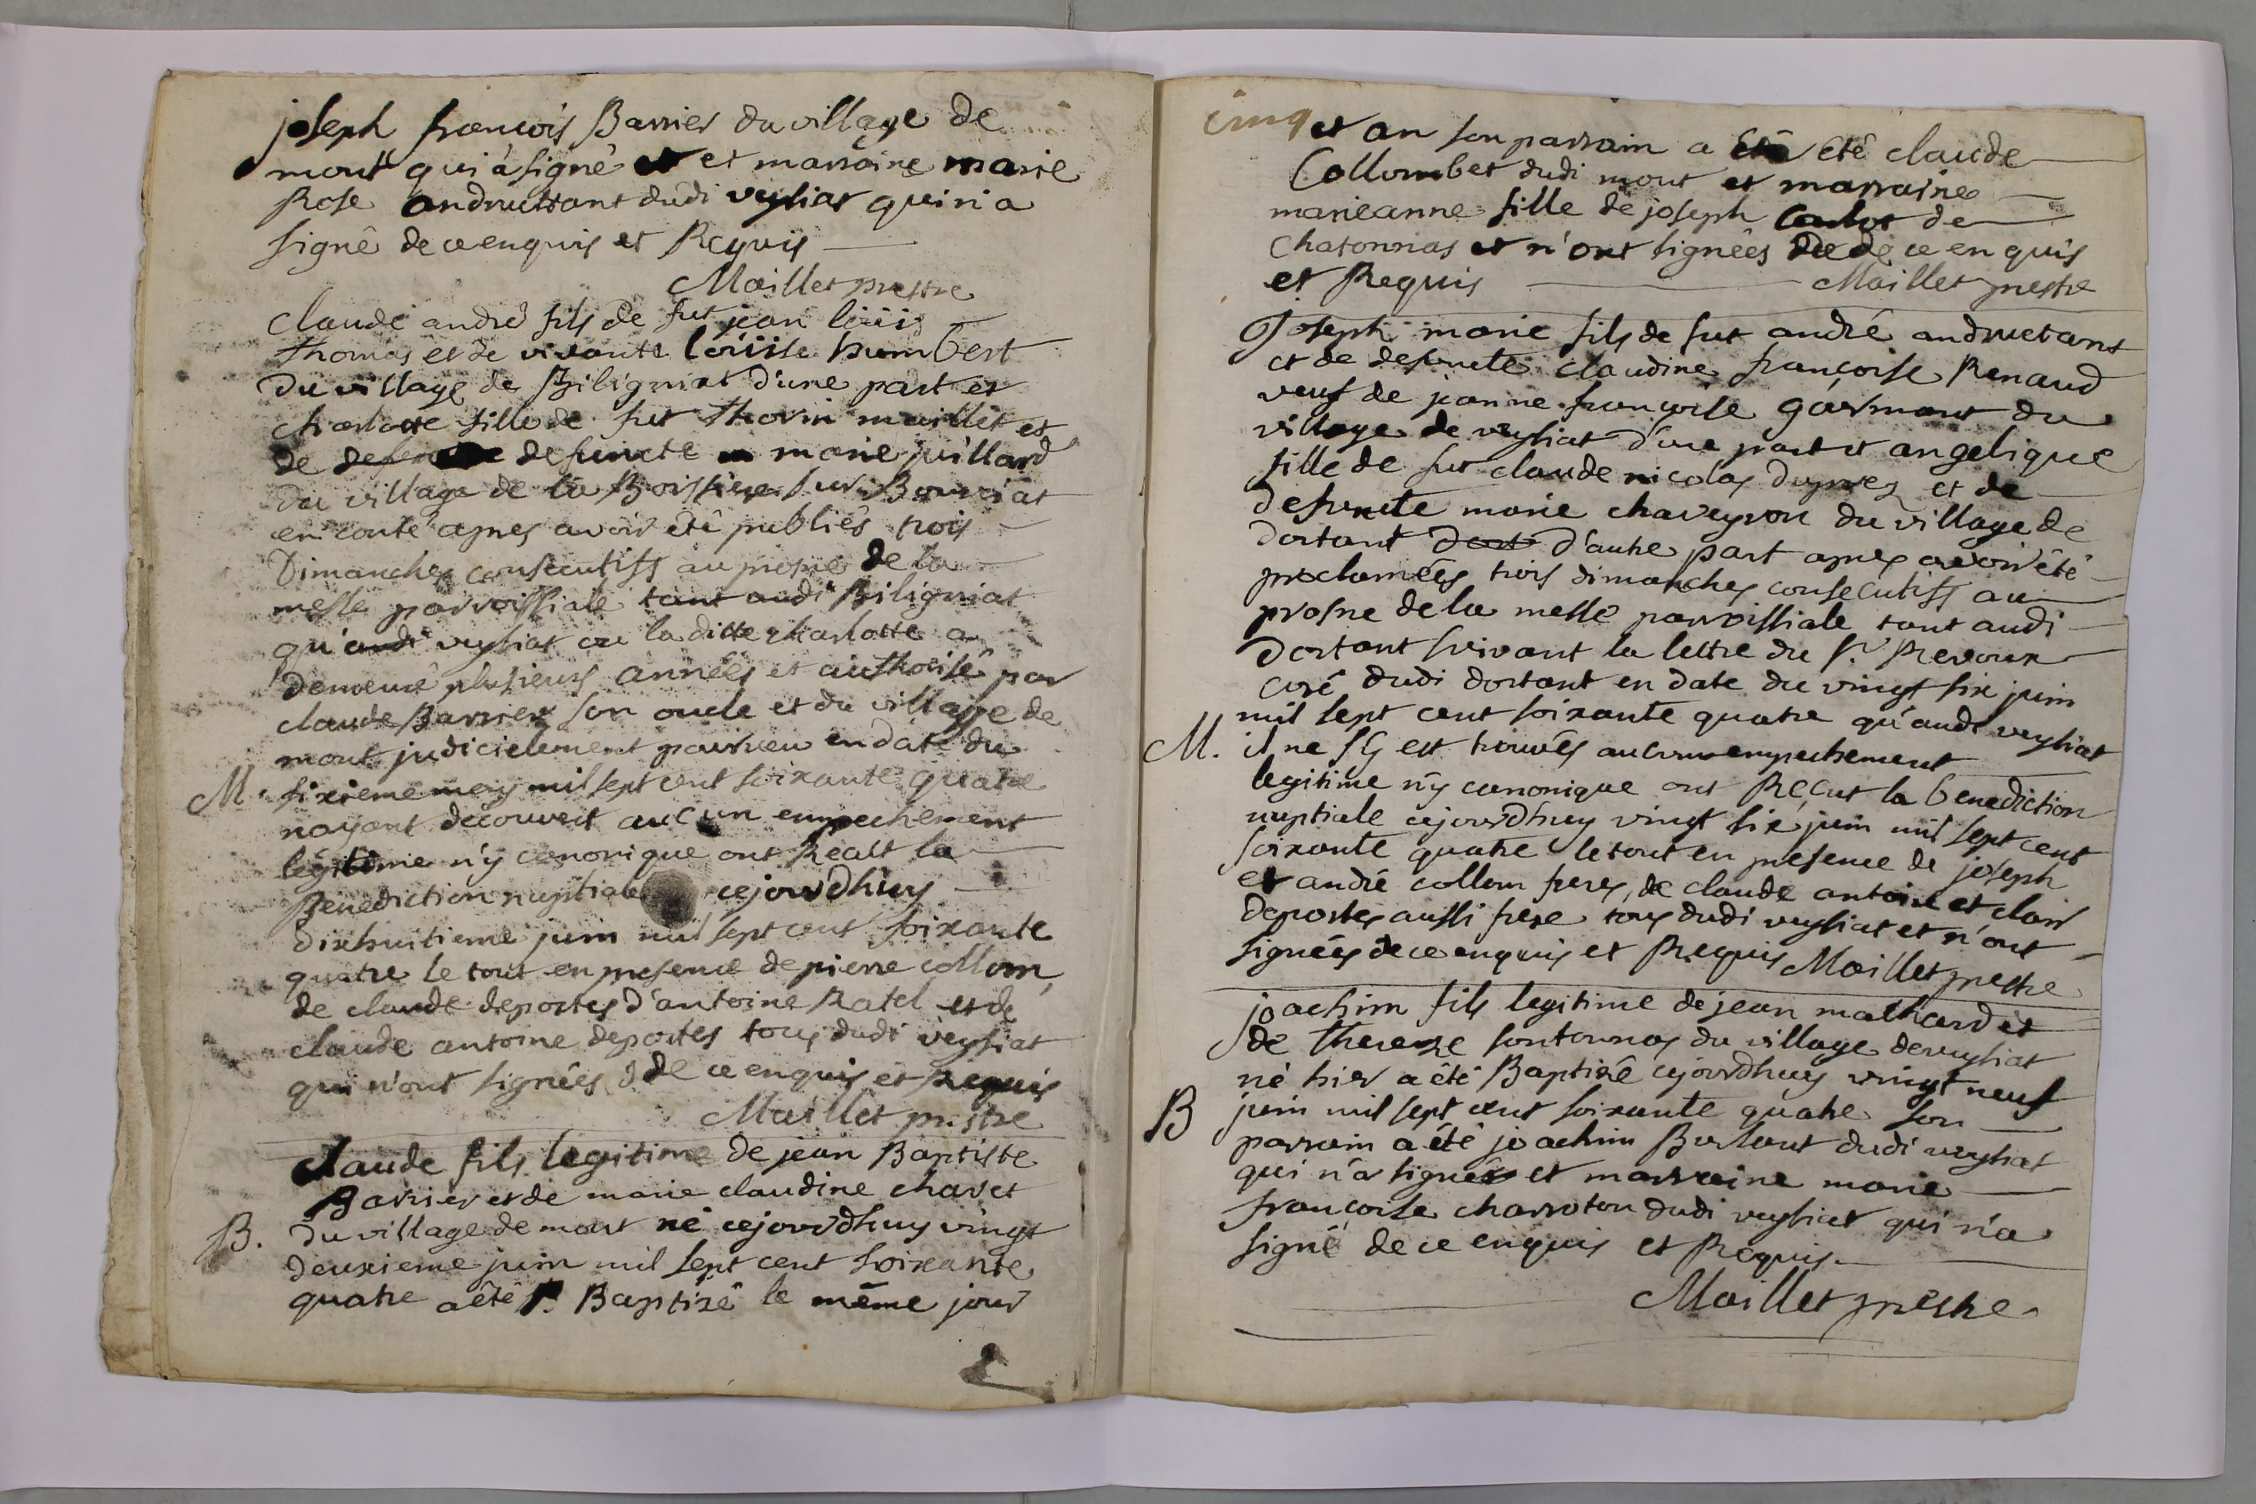 joseph francois Barrier du village de
mont qui a signé et marraine marie
Rose andruetant dudi veysiat qui n'a
signé de ce enquis et Requis
Maillet prestre
claude andré fils de fut jean loüis
thomas et de vivante loüise humbert
du village de Biligniat d'une part et
charlotte fille de fut thorin maillet et
de defuncte marie juillard
du village de la Boissiere sur Bouriat
en conté apres avoir été publiés trois
Dimanches consecutifs au prosne de la
messe parroissiale tant audi Biligniat
qu'audi veysiat ou la ditte charlotte a
demeuré plusieurs années et authorisé par
claude Barrier son oncle et du village de
mont judicielement pourveu en date du
M. sixieme may mil sept cent soixante quatre
nayant decouvert aucun empechement
legitime n'y canonique ont Recüt la
Benediction nuptiale cejourdhuy
dixhuitieme juin mil sept cent soixante
quatre le tout en presence de pierre collom,
de claude deportes d'antoine Ratel et de
claude antoine deportes tous dudi veysiat
qui n'ont signées de ce enquis et Requis
Maillet prestre
claude fils legitime de jean Baptiste
Barrier et de marie claudine chavet
B. du village de mont né cejourdhuy vingt
deuxieme juin mil sept cent soixante
quatre a été Baptisé le même jour
cinq
et an son parrain a été claude
Collombet dudi mont et marraine
marieanne fille de joseph de
chatonnas et n'ont signées de ce enquis
et Requis Maillet prestre
Joseph marie fils de fut andré andruetant
et de defuncte claudine françoise Renaud
veuf de jeanne françoise garmont du
village de veysiat d'une part et angelique
fille de fut claude nicolas duprez et de
defuncte marie chaveyron du village de
dortant d'autre part apres avoir été
proclamées trois dimanches consecutifs au
prosne de la messe parroissiale tant audi
dortant suivant la lettre du Sr. Revoux
curé dudi dortant en date du vingt six juin
mil sept cent soixante quatre qu'audi veysiat
M. il ne s'y est trouvés aucun empechement
legitime n'y canonique ont Reçut la benediction
nuptiale cejourdhuy vingt six juin mil sept cent
soixante quatre le tout en presence de joseph
et andré collom freres, de claude antoine et clair
deportes aussi frere tous dudi veysiat et n'ont
signées de ce enquis et Requis Maillet prestre
joachim fils legitime de jean mathard et
de thereze sontonnas du village de veysiat
né hier a été Baptizé cejourdhuy vingt neuf
B juin mil sept cent soixante quatre son
parrain a été joachim Burlant dudi veysiat
qui n'a signé et marraine marie
françoise charroton dudi veysiat qui n'a
signé de ce enquis et Requis
Maillet prestre